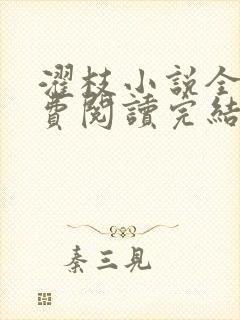 濯枝小說全
費閱讀完結
秦三見